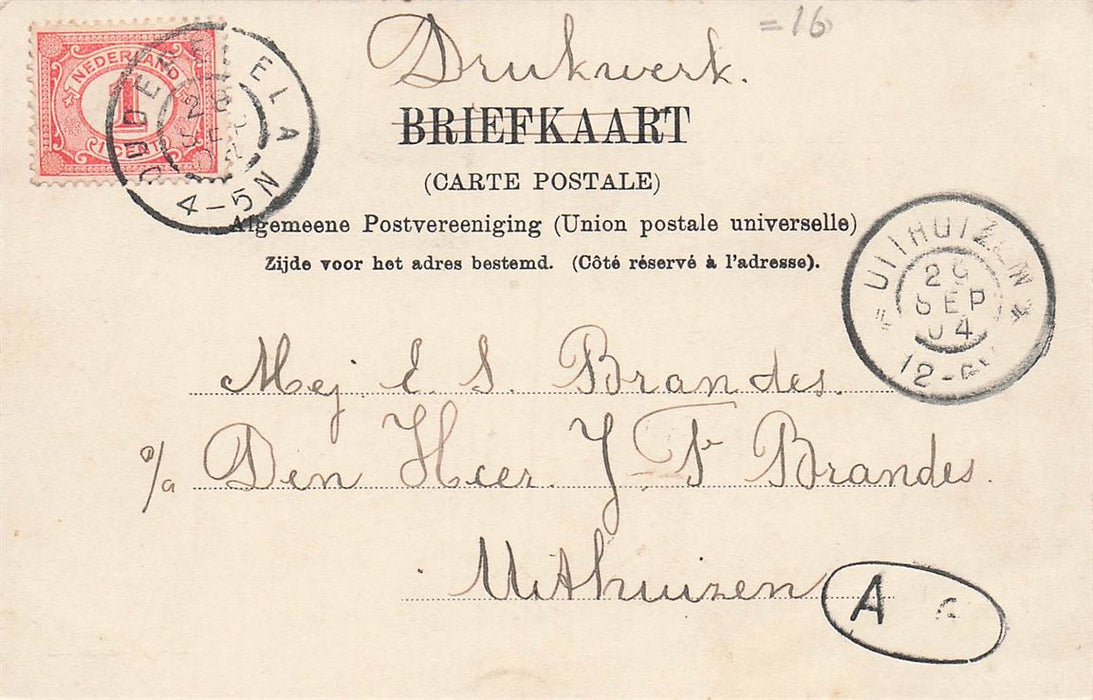 =16
Drukwerk.
NEDERLAND
1
1 CENT
OUDE PEKELA
4-5N
BRIEFKAART
(CARTE POSTALE)
Algemeene Postvereeniging (Union postale universelle)
Zijde voor het adres bestemd. (Côté réservé à l'adresse).
UITHUIZEN
SEP
04
Mej. E. S. Brandes.
p/a Den Heer J. F. Brandes.
Uithuizen
A